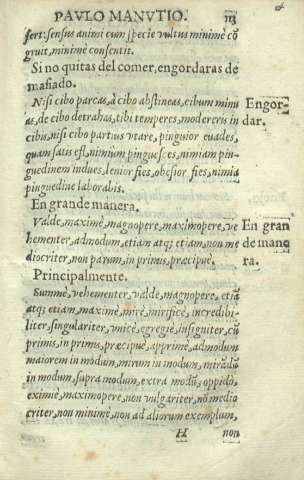 PAVLO MANVTIO. 113
fert: sensus animi cum specie vultus minimè cõ
gruit, minimè consentit.
Si no quitas del comer, engordaras de
masiado.
Nisi cibo parcas, à cibo abstineas, cibum minu
as, de cibo detrahas, tibi temperes, modereris in
cibis, nisi cibo partius vtare, pinguior euades,
quam satis est, nimium pinguesces, nimiam pin-
guedinem indues, lenior fies, obesior fies, nimia
pinguedine laborabis.
Engor-
dar.
En grande manera.
Valde, maximè, magnopere, maximopere, ve
hementer, admodum, etiam atq; etiam, non me
diocriter, non parum, in primis, præcipuè.
En gran
de mane
ra.
Principalmente.
Summè, vehementer, valde, magnopere, etiã
atq; etiam, maximè, mirè, mirificè, incredibi-
liter, singulariter, vnicè, egregiè, insigniter, cũ
primis, in primis, præcipuè, apprimè, admodum
maiorem in modum, mirum in modum, mirãdũ
in modum, supra modum, extra modũ, oppidò,
eximiè, maximopere, non vulgariter, nõ medio
criter, non minimè, non ad aliorum exemplum,
H non